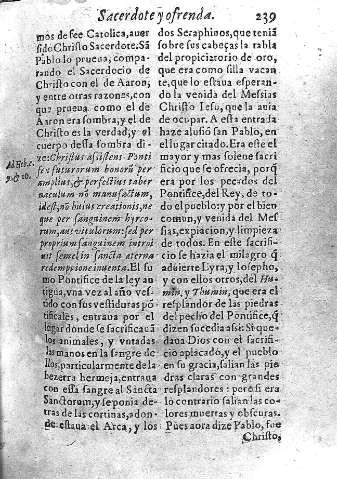 Sacerdote y ofrenda. 239
mos de fee Catolica, auer
sido Christo Sacerdote. Sã
Pablo lo prueua, compa-
rando el Sacerdocio de
Christo con el de Aaron;
y entre otras razones, con
que prueua como el de
Aaron era sombra, y el de
Christo es la verdad, y el
cuerpo desta sombra di-
ze: Christus asistens Ponti
fex futurorum bonorũ per
amplius, & perfectius taber
naculum nõ manufactum,
idest, nõ huius creationis, ne
que per sanguinem hyrco-
rum, aut vitulorum: sed per
proprium sanguinem introi
uit semel in sancta eterna
redemptione inuenta. El su
mo Pontifice de la ley an
tigua, vna vez al año ves
tido con sus vestiduras põ
tificales, entraua por el
lugar donde se sacrificauã
los animales, y vntadas
las manos en la sangre de
llos, particularmente de la
bezerra hermeja, entraua
con esta sangre al Sancta
Sanctorum, y se ponia de-
tras de las cortinas, adon
de estaua el Arca, y los
Ad Hebr.
9. & 10.
dos Seraphinos, que teniã
sobre sus cabeças la tabla
del propiciatorio de oro,
que era como silla vacan
te, que lo estaua esperan-
do la venida del Messias
Christo Iesu, que la auia
de ocupar. A esta entrada
haze alusiõ san Pablo, en
el lugar citado. Era este el
mayor y mas solene sacri
ficio que se ofrecia, porq̃
era por los pecados del
Pontifice, del Rey, de to-
do el pueblo: y por el bien
comun, y venida del Mes
sias, expiacion, y limpieza
de todos. En este sacrifi-
cio se hazia el milagro q̃
aduierte Lyra, y Iosepho,
y con ellos otros, del Hu-
min, y Thumin, que era el
resplandor de las piedras
del pecho del Pontifice, q̃
dizen sucedia assi: Si que-
daua Dios con el sacrifi-
cio aplacado, y el pueblo
en su gracia, salian las pie
dras claras con grandes
resplandores: pero si era
lo contrario salian las co
lores muertas y obscuras.
Pues aora dize Pablo, fue
Christo,